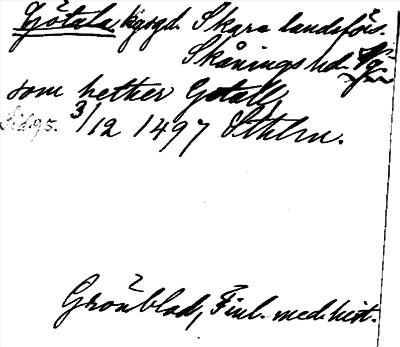 Götala, kgsgd. Skara landsförs.
Skånings hd.
som hether Gotall
Sid 95. 3/12 1497 Sthlm.
Grönblad, Finl. med. hist.